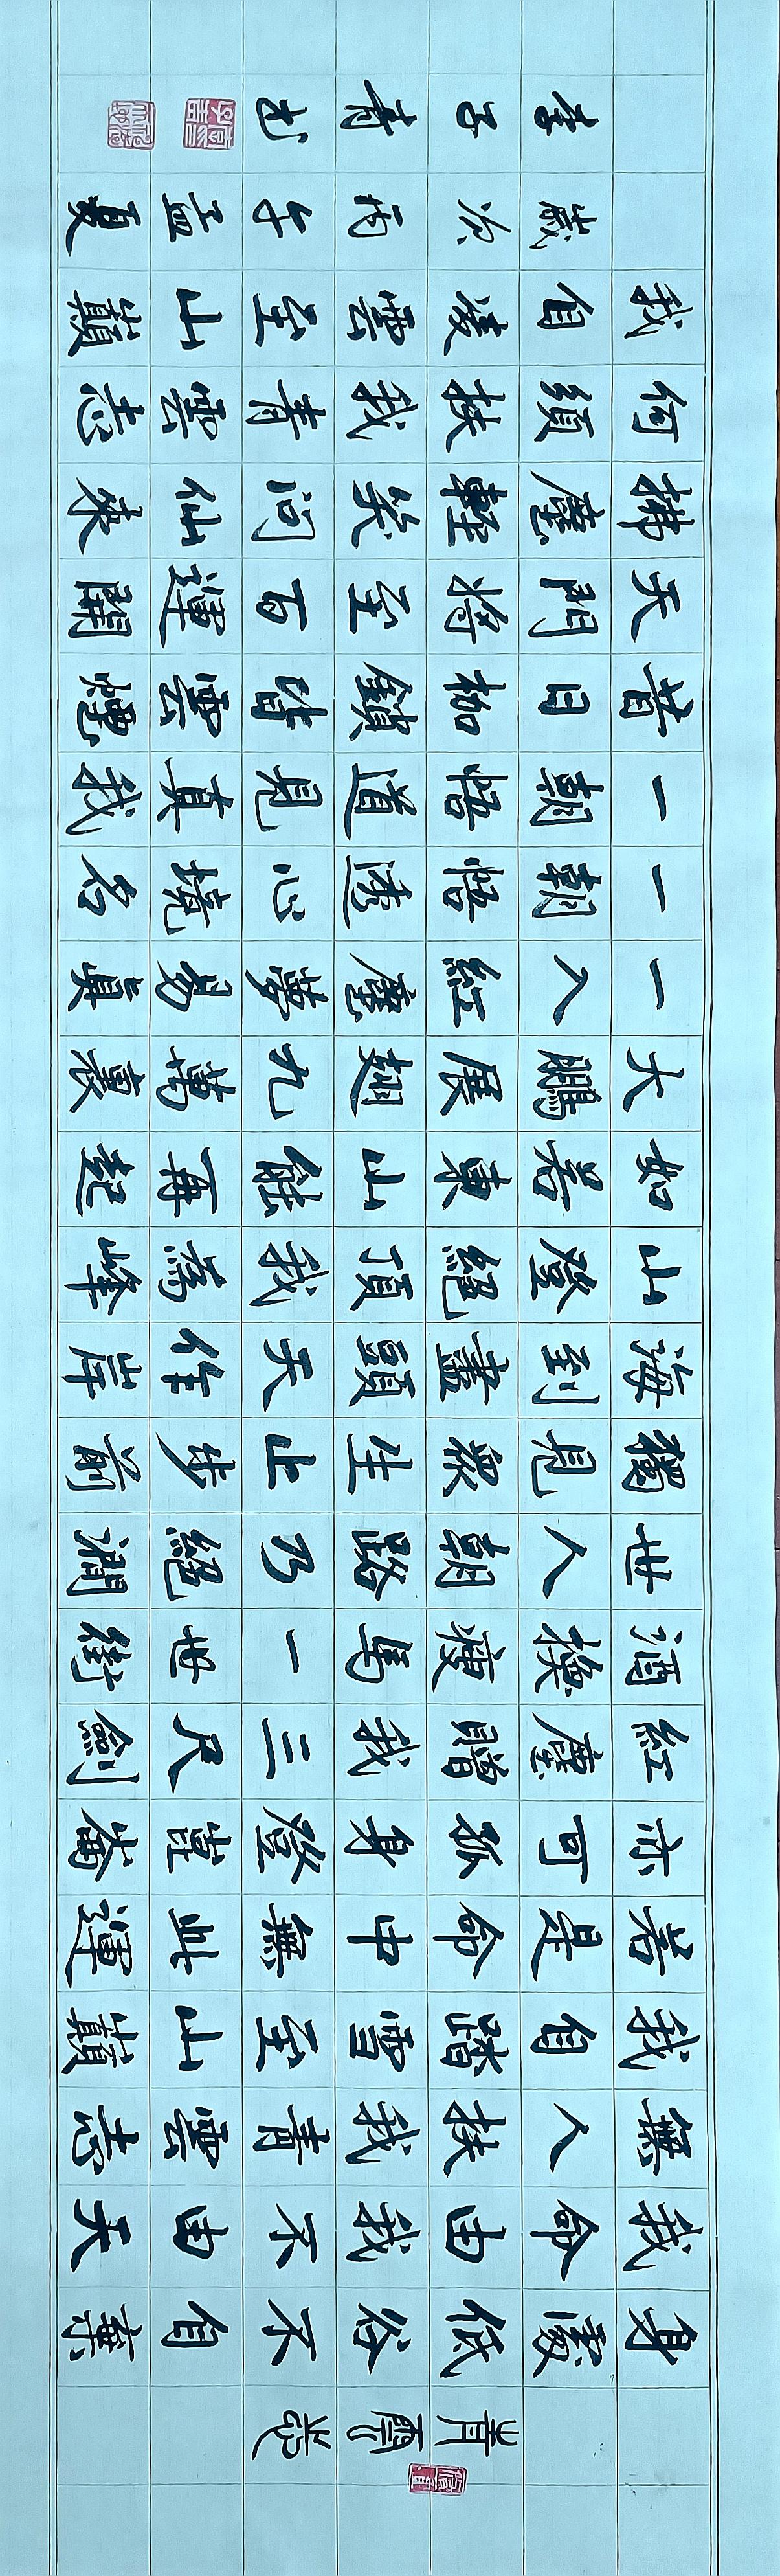 青雲志
身處低谷不自棄
我命由我不由天
無人扶我青雲志
我自踏雪至山巔
若是命中無此運
亦可孤身登崑崙
紅塵贈我三尺劍
酒換瘦馬一世街
世人朝路乃絕澗
獨見眾生止步前
海到盡頭天作岸
山登絕頂我為峰
如若東山能再起
大鵬展翅九萬裏
一入紅塵夢易真
一朝悟透心境名
一朝悟道見真我
昔日枷鎖皆雲煙
天門將至百運開
拂塵輕笑問仙來
何須扶我青雲志
我自凌雲至山巔
歲次丙午孟夏
李子青书